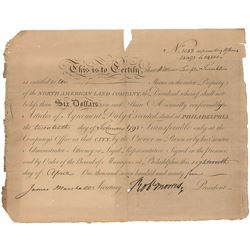 This is to Certify, that
is entitled to
Shares in the entire Property
of the NORTH AMERICAN LAND COMPANY, the Dividend whereof shall not
be less than Six Dollars on each Share Annually, conformably to
Articles of Agreement Duly Executed dated at PHILADELPHIA
the twentieth day of February 1795 Transferable only at the
Company's Office in that CITY, by the Owner in Person or by his
Administrator Attorney or Legal Representative Signed in the presence
and by Order of the Board of Managers, at Philadelphia this eighteenth
day of
One thousand
James Marshall Secretary Rob Morris President